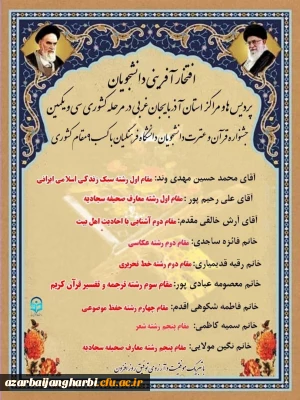 افتخار آفرینی دانشجویان
پردیس ها و مراکز استان آذربایجان غربی در مرحله کشوری سی و یکمین
جشنواره قرآن و عترت دانشجویان دانشگاه فرهنگیان با کسب ۹ مقام کشوری
آقای محمد حسین مهدی وند: مقام اول رشته سبک زندگی اسلامی ایرانی
آقای علی رحیم پور: مقام اول رشته معارف صحیفه سجادیه
آقای آرش خالقی مقدم: مقام دوم آشنایی با احادیث اهل بیت
خانم فائزه ساجدی: مقام دوم رشته عکاسی
خانم رقیه قدیمیاری: مقام دوم رشته خط تحریری
خانم معصومه عبادی پور: مقام سوم رشته ترجمه و تفسیر قرآن کریم
خانم فاطمه شکوهی اقدم: مقام چهارم رشته حفظ موضوعی
خانم سمیه کاظمی: مقام پنجم رشته شعر
خانم نگین مولایی: مقام پنجم رشته معارف صحیفه سجادیه
با تبریک موفقیت و آرزوی توفیق روز افزون
azarbaijangharbi.cfu.ac.ir